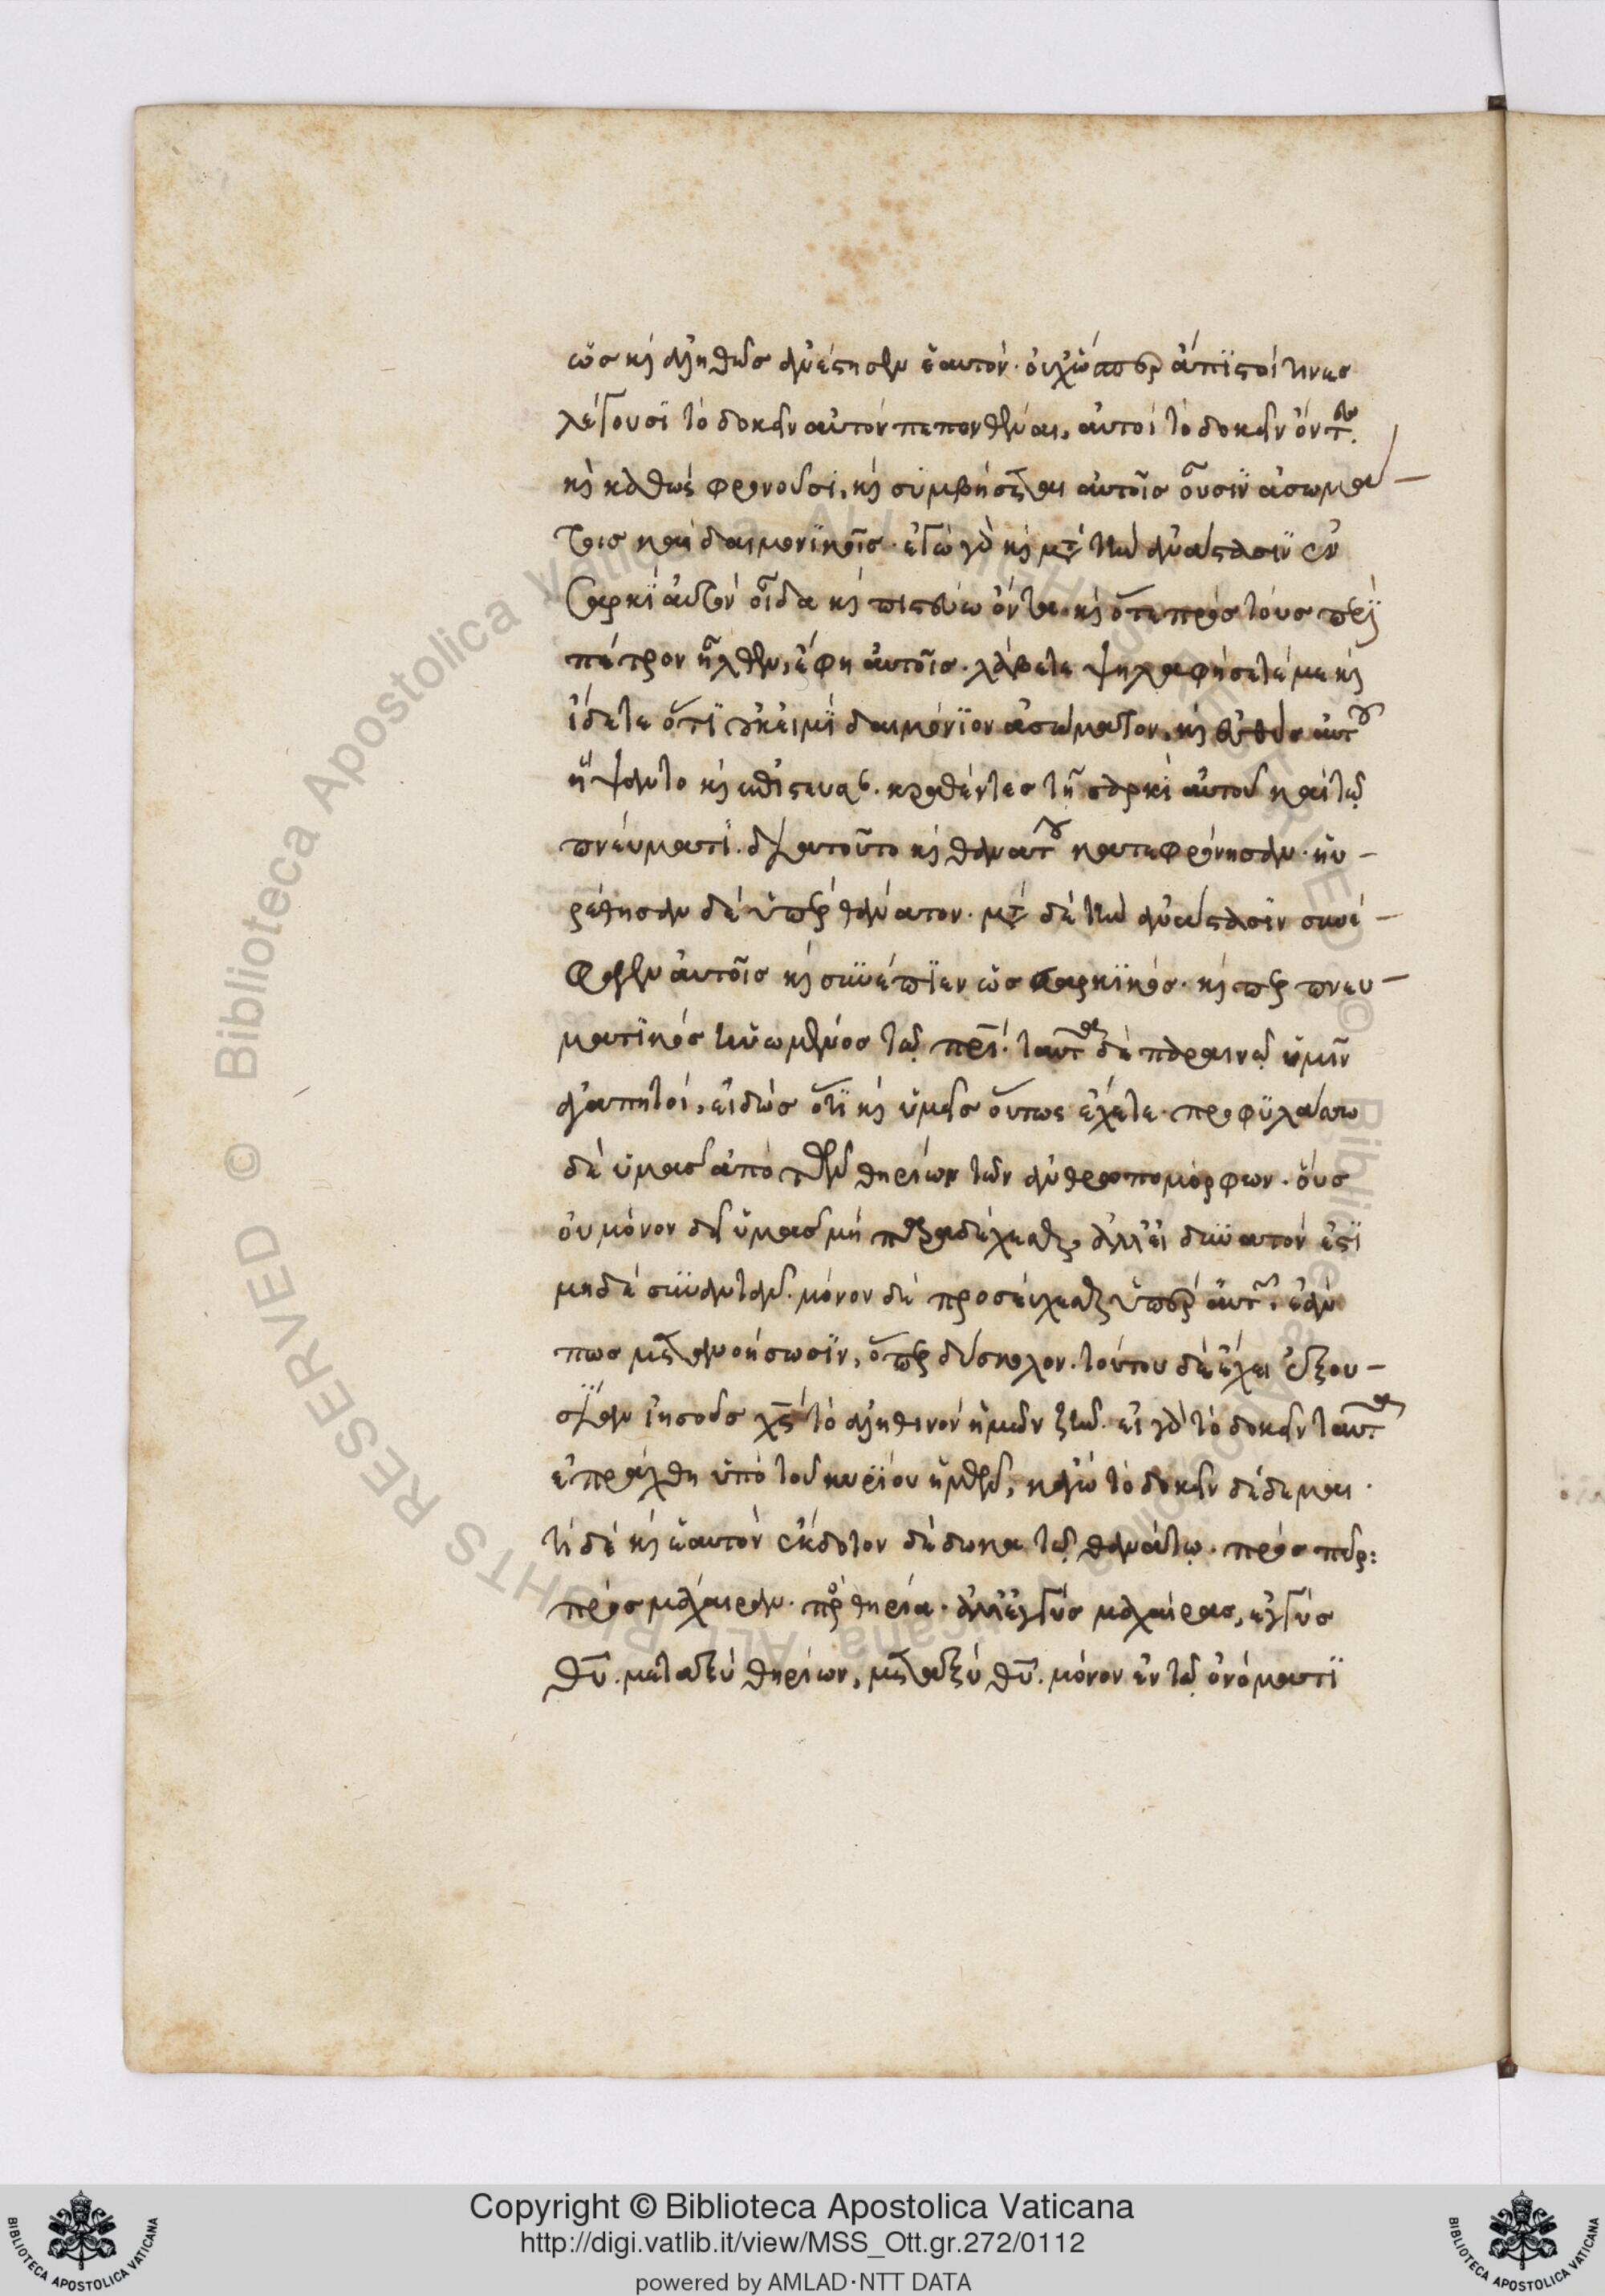 ὡς κὶ ἀληθῶς ἀνέστησεν ἑαυτόν· οὐχ ὥσπερ ἄπιστοί τινες
λέγουσι τὸ δοκεῖν αὐτόν πεπονθέναι, αὐτοὶ τὸ δοκεῖν ὄντες.
κὶ καθὼς φρονοῦσι, κὶ συμβήσεται αὐτοῖς οὖσιν ἀσωμα-
τοις καὶ δαιμονικοῖς. ἐγὼ γὰρ κὶ μετὰ τὴν ἀνάστασιν ἐν
σαρκὶ αὐτὸν οἶδα κὶ πιστεύω ὄντα. κὶ ὅτε πρὸς τοὺς περὶ
πέτρον ἦλθεν, ἔφη αὐτοῖς. λάβετε ψηλαφήσετέ με κὶ
ἴδετε ὅτι οὐκ εἰμὶ δαιμόνιον ἀσώματον, κὶ εὐθὺς αὐτοῦ
ἥψαντο κὶ ἐπίστευσαν. κραθέντες τῇ σαρκὶ αὐτοῦ καὶ τῷ
πνεύματι. διὰ τοῦτο κὶ θανάτου κατεφρόνησαν. ηὑ-
ρέθησαν δὲ ὑπὲρ θάνατον. μετὰ δὲ τὴν ἀνάστασιν συνέ-
φαγεν αὐτοῖς κὶ συνέπιεν ὡς σαρκικός. κὶ περ πνευ-
ματικῶς ἡνωμένος τῷ πρί. ταῦτα δὲ παραινῶ ὑμῖν
ἀγαπητοί, εἰδὼς ὅτι κὶ ὑμεῖς οὕτως ἔχετε. προφυλάσσω
δὲ ὑμᾶς ἀπὸ τῶν θηρίων τῶν ἀνθρωπομόρφων. οὓς
οὐ μόνον δεῖ ὑμᾶς μὴ παραδέχεσθαι, ἀλλ' εἰ δυνατόν ἐστι
μηδὲ συναντᾶν. μόνον δὲ προσεύχεσθαι ὑπὲρ αὐτῶν. ἐάν
πως μετανοήσωσιν, ὅπερ δύσκολον. τούτου δὲ ἔχει ἐξου-
σίαν ἰησοῦς χς τὸ ἀληθινὸν ἡμῶν ζῆν. εἰ γὰρ τὸ δοκεῖν ταῦτα
ἐπράχθη ὑπὸ τοῦ κυρίου ἡμῶν, κἀγὼ τὸ δοκεῖν δέδεμαι.
τί δὲ κὶ ἑαυτὸν ἔκδοτον δέδωκα τῷ θανάτῳ. πρὸς πῦρ:
πρὸς μάχαιραν. πρὸς θηρία. ἀλλ' ἐγγὺς μαχαίρας, ἐγγὺς
θυ. μεταξὺ θηρίων, μεταξὺ θυ. μόνον ἐν τῷ ὀνόματι
Copyright © Biblioteca Apostolica Vaticana
http://digi.vatlib.it/view/MSS_Ott.gr.272/0112
powered by AMLAD·NTT DATA